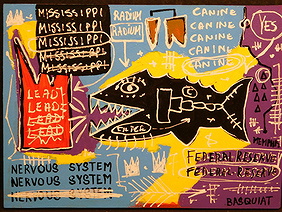 MISSISSIPPI
MISSISSIPPI
MISSISSIPPI
MISSISSIPPI
MISSISSIPPI
RADIUM
RADIUM
CANINE
CANINE
CANINE
CANINE
CANINE
YES
LEAD
LEAD
LEAD
LEAD
MEMPHIS
NERVOUS SYSTEM
NERVOUS SYSTEM
NERVOUS SYSTEM
FEDERAL RESERVE
FEDERAL RESERVE
BASQUIAT